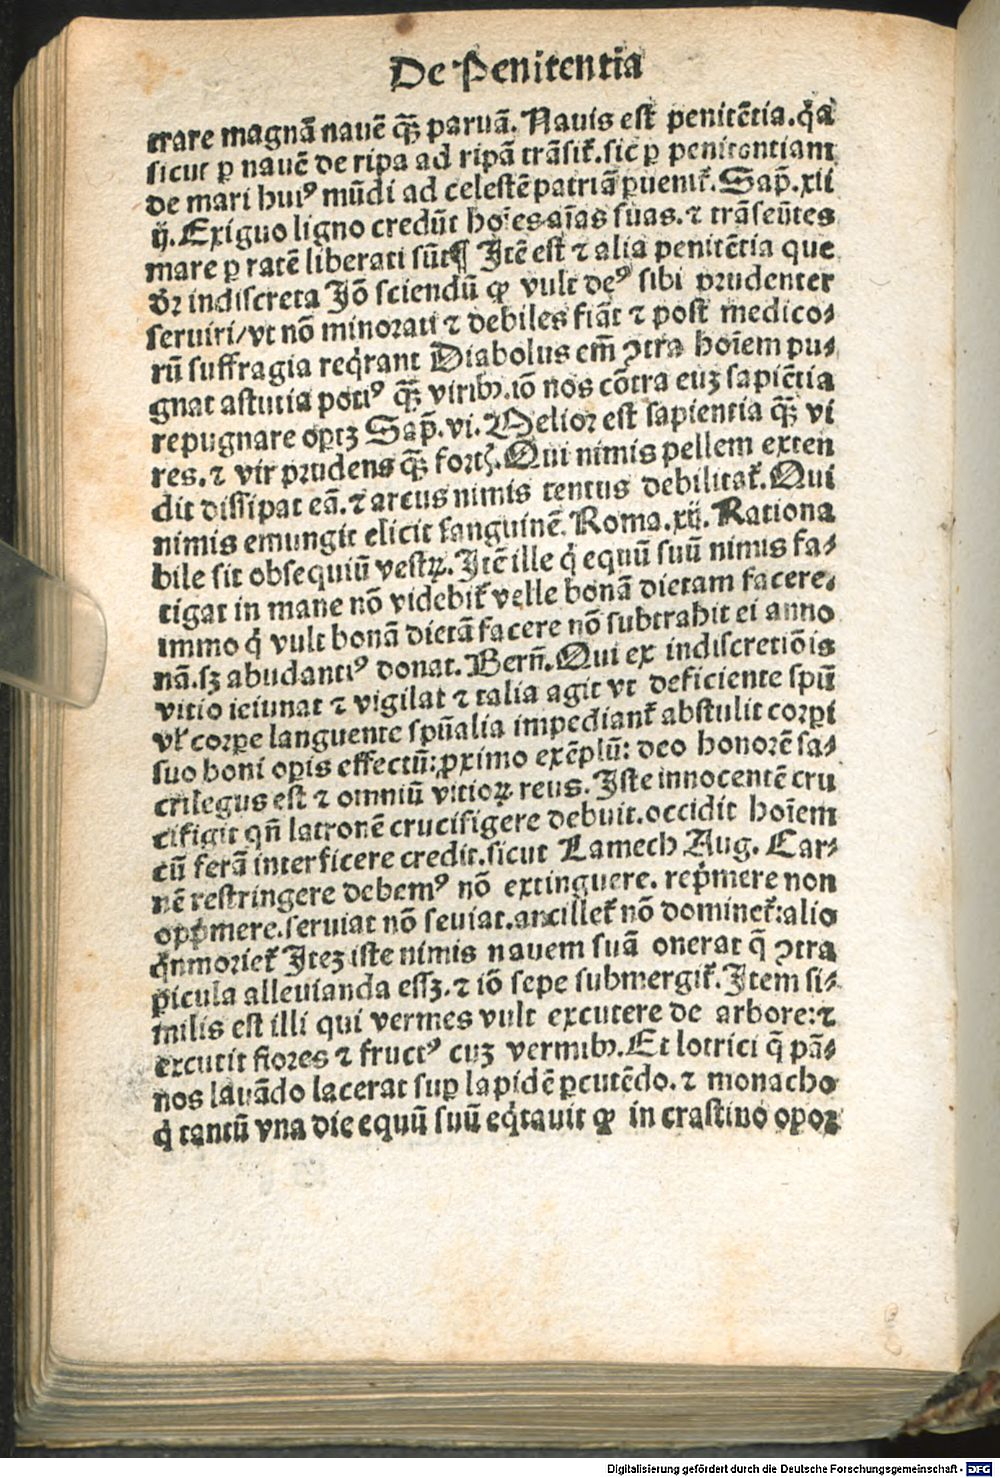 De Penitentia
trare magnã nauẽ q̃ꝫ paruã. Nauis est penitẽtia. q̃a
sicut ꝑ nauẽ de ripa ad ripã trãsit᷑. sic ꝑ penitentiam
de mari huiꝰ mũdi ad celestẽ patriã ꝑuenit᷑. Sap̃. xii
ij. Exiguo ligno credũt hoĩes aĩas suas. ⁊ trãseũtes
mare ꝑ ratẽ liberati sũt¶ Itẽ est ⁊ alia penitẽtia que
dr̃ indiscreta Iõ sciendũ ꝙ vult deꝰ sibi prudenter
seruiri/vt nõ minorati ⁊ debiles fiãt ⁊ post medico⸗
rũ suffragia reqͥrant Diabolus em̃ ꝯtra hoĩem pu⸗
gnat astutia potiꝰ q̃ꝫ viribꝰ. iõ nos cõtra euꝫ sapiẽtia
repugnare oportꝫ Sap̃. vi. Melior est sapientia q̃ꝫ vi
res. ⁊ vir prudens q̃ꝫ fortꝭ. Qui nimis pellem exten
dit dissipat eã. ⁊ arcus nimis tentus debilitat᷑. Qui
nimis emungit elicit sanguinẽ. Roma. xij. Rationa
bile sit obsequiũ vestrꝝ. Itẽ ille qͥ equũ suũ nimis fa⸗
tigat in mane nõ videbit᷑ velle bonã dietam facere.
immo qͥ vult bonã dietã facere nõ subtrahit ei anno
nã. sꝫ abũdantiꝰ donat. Bern̄. Qui ex indiscretiõis
vitio ieiunat ⁊ vigilat ⁊ talia agit vt deficiente spũ
vl᷑ corpe languente spũalia impediant᷑ abstulit corpi
suo boni opis effectũ: ꝓximo exẽplũ: deo honorẽ sa⸗
crilegus est ⁊ omniũ vitioꝝ reus. Iste innocentẽ cru
cifigit qñ latronẽ crucifigere debuit. occidit hoĩem
cũ ferã interficere credit. sicut Lamech Aug. Car⸗
nẽ restringere debemꝰ nõ extinguere. rep̃mere non
opp̃mere. seruiat nõ seuiat. ancillet᷑ nõ dominet᷑: alio
qͥn moriet᷑ Iteꝫ iste nimis nauem suã onerat q̃ ꝯtra
ꝑicula alleuianda essꝫ. ⁊ iõ sepe submergit᷑. Item si⸗
milis est illi qui vermes vult excutere de arbore: ⁊
excutit flores ⁊ fructꝰ cuꝫ vermibꝰ. Et lotrici q̃ pã⸗
nos lauãdo lacerat sup lapidẽ ꝑcutẽdo. ⁊ monacho
qͥ tantũ vna die equũ suũ eqͥtauit ꝙ in crastino opor
Digitalisierung gefördert durch die Deutsche Forschungsgemeinschaft - DFG